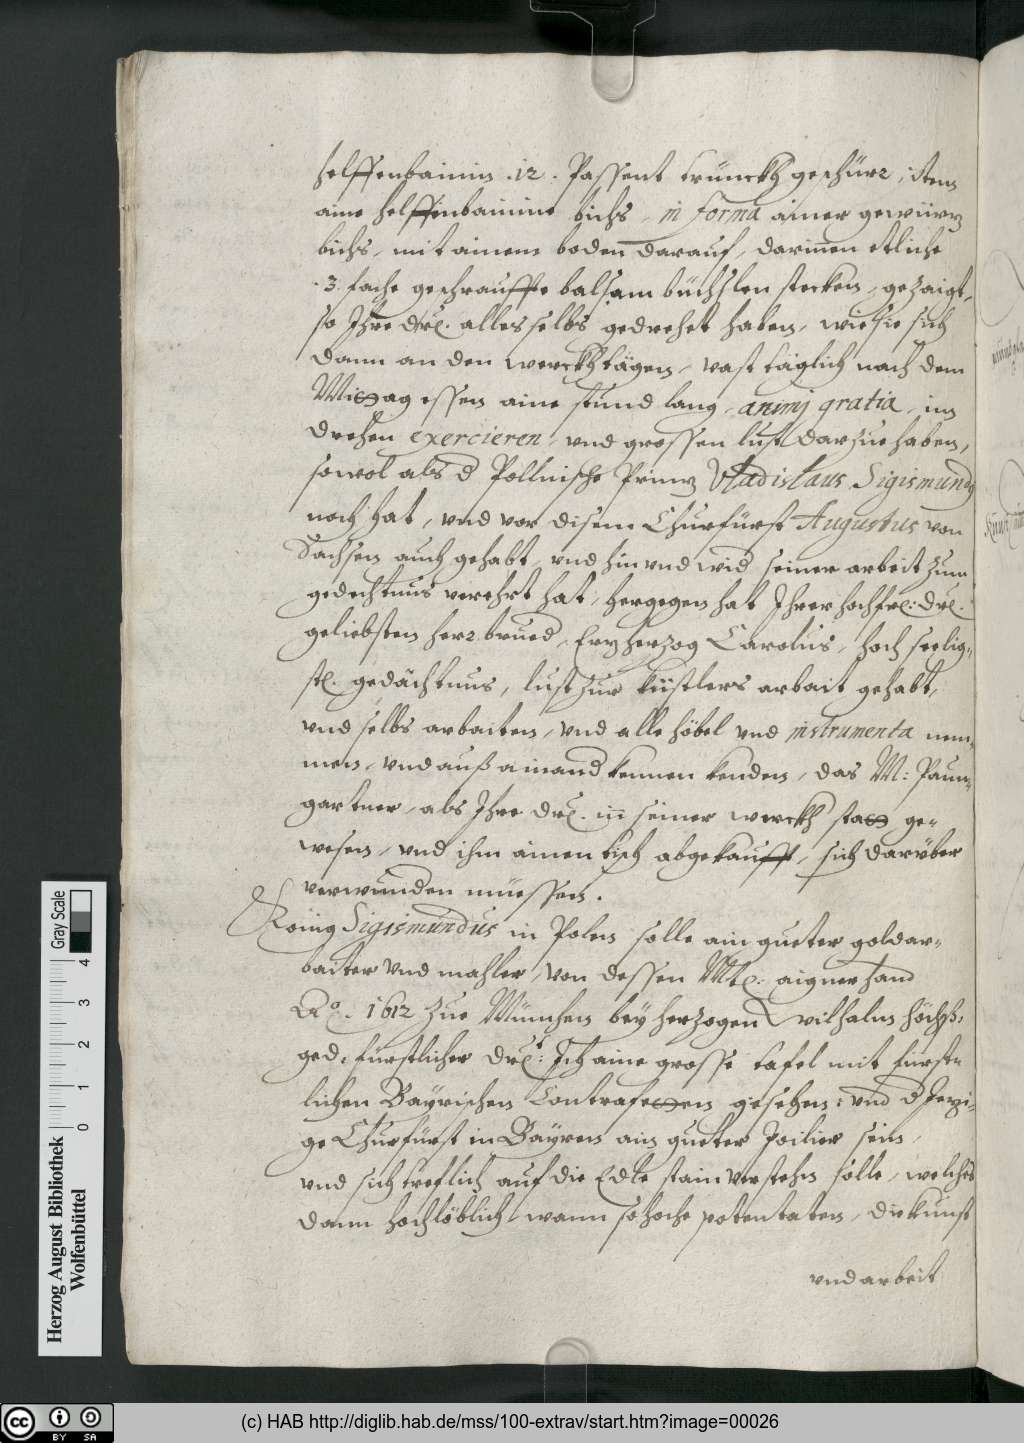 helffenbainin .12. Passent trünckhgeschürz, item
aine helffenbainine bichs, in forma ainer gewürz
bichs, mit ainem boden darauf, darinnen etliche
.3. fache geschrauffte balsam büchslen stecken, gezaigt,
so Ihre drl. alles selbs gedrehet haben, wie sie sich
dann an den werckhtägen, vast täglich nach dem
Mittag essen aine stund lang, animj gratia, im
drehen exercieren, und grossen lust darzue haben,
sowol als d Pollnische Prinz Vladislaus Sigismundj
noch hat, und vor disem Churfürst Augustus von
Sachsen auch gehabt, und hin und wid seiner arbeit zum
gedechtnus verehrt hat, hergegen hat Ihrer hochfrl: drl.
geliebsten herz brued, Erzherzog Carolus, hoch seelig-
stl. gedächtnus, lust zur küstlers arbait gehabt,
und selbs arbaiten, und alle höbel und instrumenta nem-
men, und auß ainand kennen kenden, das M: Paum-
gartner, als Ihre drl. in seiner werckhstatt ge-
wesen, und ihm ainen tisch abgekaufft, sich darüber
verwunden müessen.
König Sigismundus in Polen solle ain gueter goldar-
baiter und mahler, von dessen Mtl: aigner hand
Ao. 1612 zue München bey herzogen Wilhalm höchst-
ged: fürstlicher drlt: Ich aine grosse tafel mit fürst-
lichen Bayrischen Contrafetten gesehen: und d Jezi-
ge Churfürst in Bayren ain gueter Joilier sein,
und sich treflich auf die Edle stain verstehn solle, welches
dann hochlöblich wann so hoche potentaten, die kunst
und arbeit
Herzog August Bibliothek
Wolfenbüttel
0 1 2 3 4
Gray Scale
cc BY SA
(c) HAB http://diglib.hab.de/mss/100-extrav/start.htm?image=00026